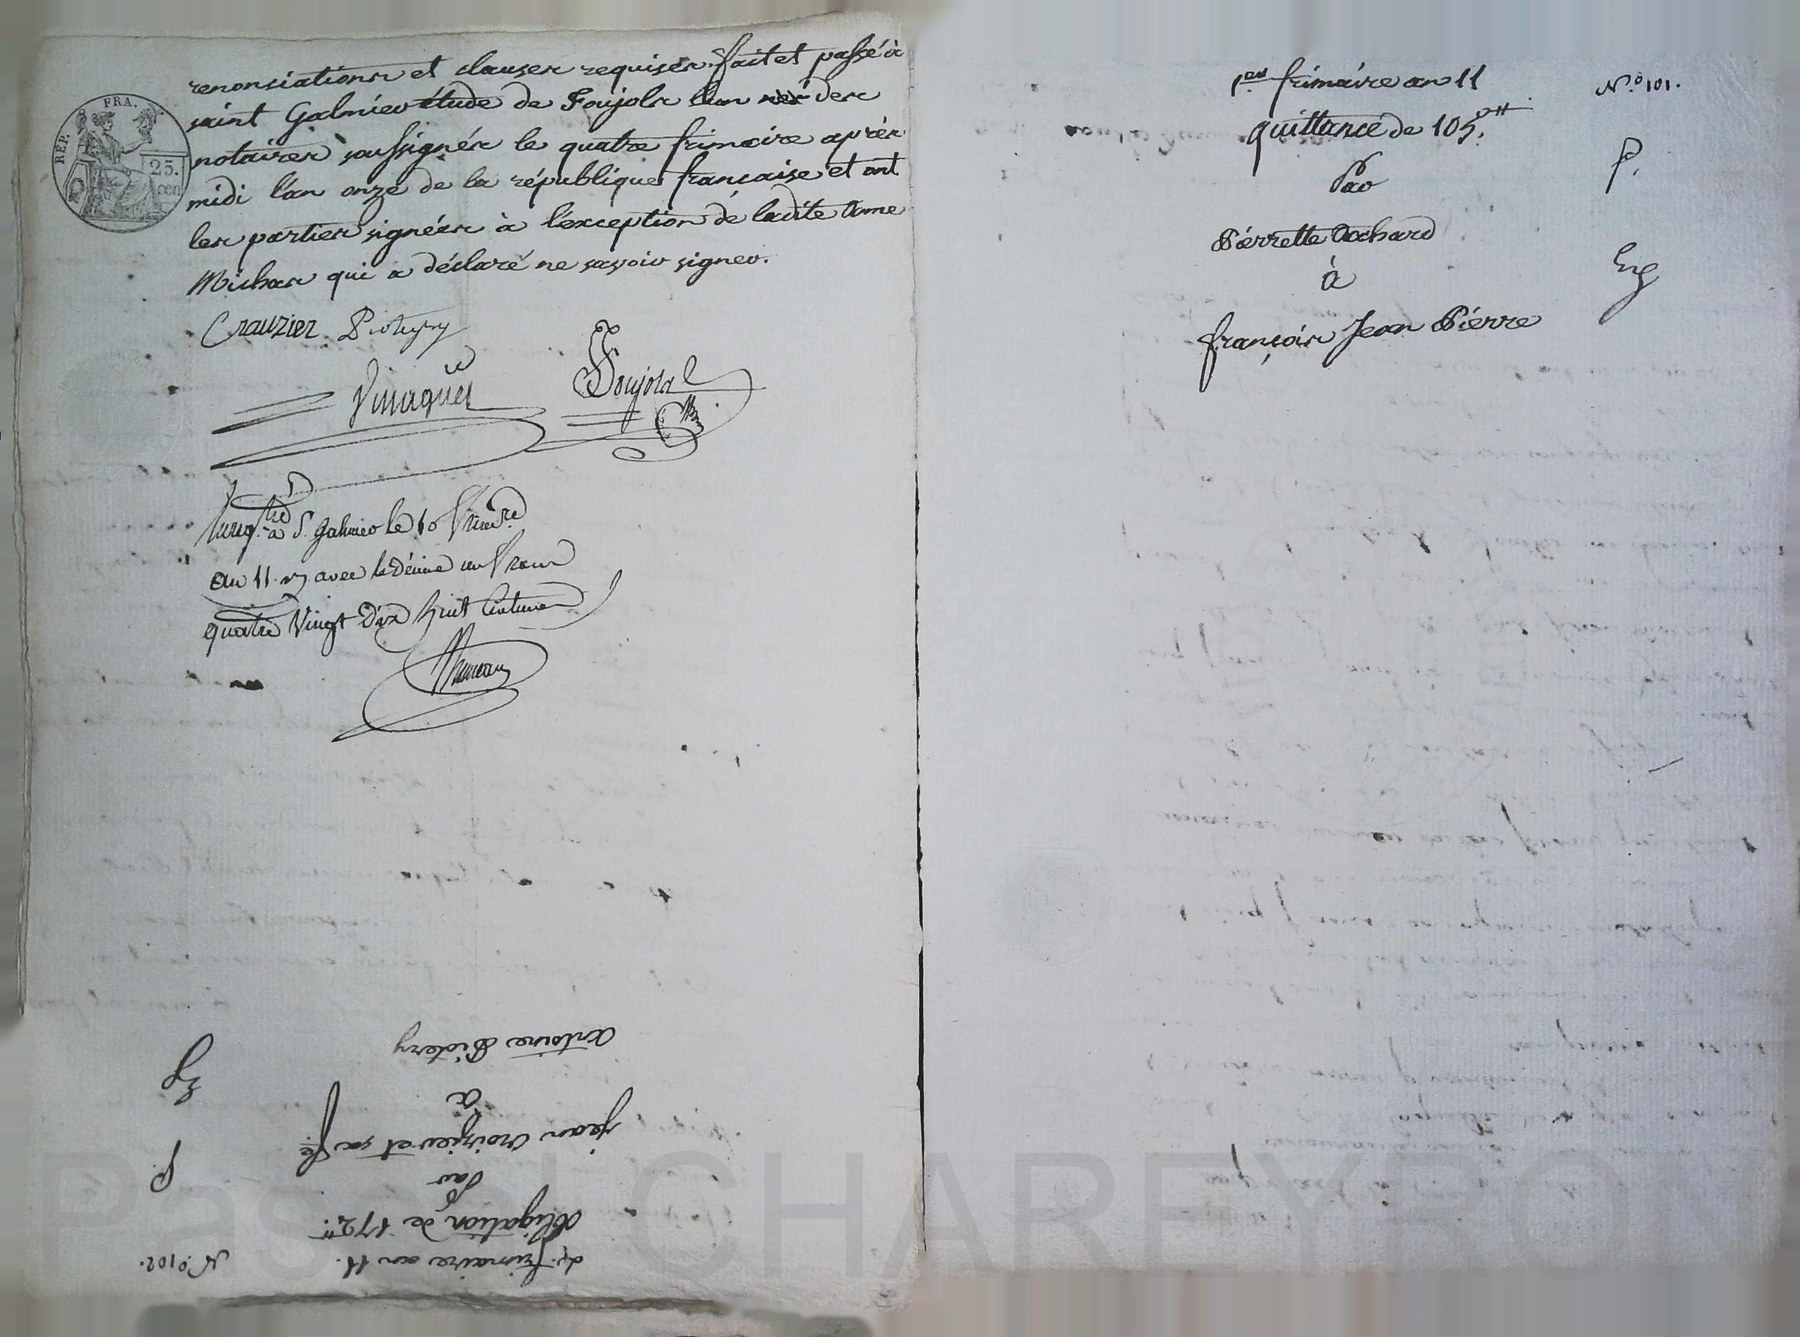 renonciations et clauses requises. fait et passé à
saint Galmier étude de Poujols l'un des
notaires soussignés le quatre frimaire après
midi l'an onze de la république française et ont
les parties signées à l'exception de ladite dame
qui a déclaré ne savoir signer.
REP. FRA.
25.
cen
Crauzier
Vinaquer
Poujols
Enregtré à St. Galmier le 10 frimre
an 11 avec le décime un franc
quatre Vingt Dix huit Centimes
N.º 102.
4. frimaire an 11.
obligation de 172.
Par
P.
jean Croizier et sa fe.
à
Eg
antoine
1er frimaire an 11
N.º 101.
quittance de 105.
P.
Par
Pierrette Achard
Eg
à
françois Jean Pierre
Pascal CHAREYRON